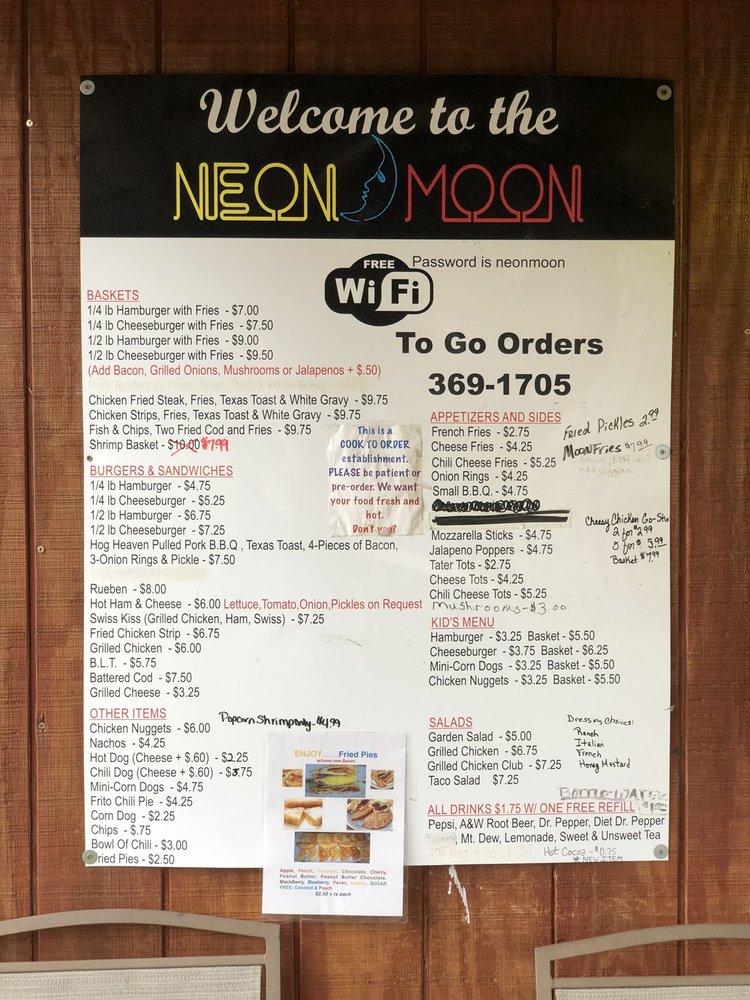 Welcome to the
NEON MOON
FREE
Wi Fi
Password is neonmoon
To Go Orders
369-1705
BASKETS
1/4 lb Hamburger with Fries - $7.00
1/4 lb Cheeseburger with Fries - $7.50
1/2 lb Hamburger with Fries - $9.00
1/2 lb Cheeseburger with Fries - $9.50
(Add Bacon, Grilled Onions, Mushrooms or Jalapenos + $.50)
Chicken Fried Steak, Fries, Texas Toast & White Gravy - $9.75
Chicken Strips, Fries, Texas Toast & White Gravy - $9.75
Fish & Chips, Two Fried Cod and Fries - $9.75
Shrimp Basket - $10.00 $7.99
This is a
COOK TO ORDER
establishment.
PLEASE be patient or
pre-order. We want
your food fresh and
hot.
Don't you?
BURGERS & SANDWICHES
1/4 lb Hamburger - $4.75
1/4 lb Cheeseburger - $5.25
1/2 lb Hamburger - $6.75
1/2 lb Cheeseburger - $7.25
Hog Heaven Pulled Pork B.B.Q , Texas Toast, 4-Pieces of Bacon,
3-Onion Rings & Pickle - $7.50
Rueben - $8.00
Hot Ham & Cheese - $6.00 Lettuce,Tomato,Onion,Pickles on Request
Swiss Kiss (Grilled Chicken, Ham, Swiss) - $7.25
Fried Chicken Strip - $6.75
Grilled Chicken - $6.00
B.L.T. - $5.75
Battered Cod - $7.50
Grilled Cheese - $3.25
OTHER ITEMS
Popcorn Shrimp only - $4.99
Chicken Nuggets - $6.00
Nachos - $4.25
Hot Dog (Cheese + $.60) - $2.25
Chili Dog (Cheese + $.60) - $3.75
Mini-Corn Dogs - $4.75
Frito Chili Pie - $4.25
Corn Dog - $2.25
Chips - $.75
Bowl Of Chili - $3.00
Fried Pies - $2.50
ENJOY......Fried Pies
w/some new flavors
Apple, Peach, Coconut, Chocolate, Cherry,
Peanut Butter, Peanut Butter Chocolate,
BlackBerry, Blueberry, Pecan, Lemon, SUGAR
FREE: Coconut & Peach
$2.50 + tx each
APPETIZERS AND SIDES
French Fries - $2.75
Cheese Fries - $4.25
Chili Cheese Fries - $5.25
Onion Rings - $4.25
Small B.B.Q. - $4.75
Fried Pickles 2.99
Moon Fries $7.99
Mozzarella Sticks - $4.75
Jalapeno Poppers - $4.75
Tater Tots - $2.75
Cheese Tots - $4.25
Chili Cheese Tots - $5.25
Mushrooms - $3.00
Cheesy Chicken Go-Stix
2 for $2.99
5 for $5.99
Basket $7.99
KID'S MENU
Hamburger - $3.25 Basket - $5.50
Cheeseburger - $3.75 Basket - $6.25
Mini-Corn Dogs - $3.25 Basket - $5.50
Chicken Nuggets - $3.25 Basket - $5.50
SALADS
Garden Salad - $5.00
Grilled Chicken - $6.75
Grilled Chicken Club - $7.25
Taco Salad $7.25
Dressing Choices:
Ranch
Italian
French
Honey Mustard
BOTTLE WATER
ALL DRINKS $1.75 W/ ONE FREE REFILL
Pepsi, A&W Root Beer, Dr. Pepper, Diet Dr. Pepper
, Mt. Dew, Lemonade, Sweet & Unsweet Tea
Hot Cocoa - $0.75
* NEW ITEM